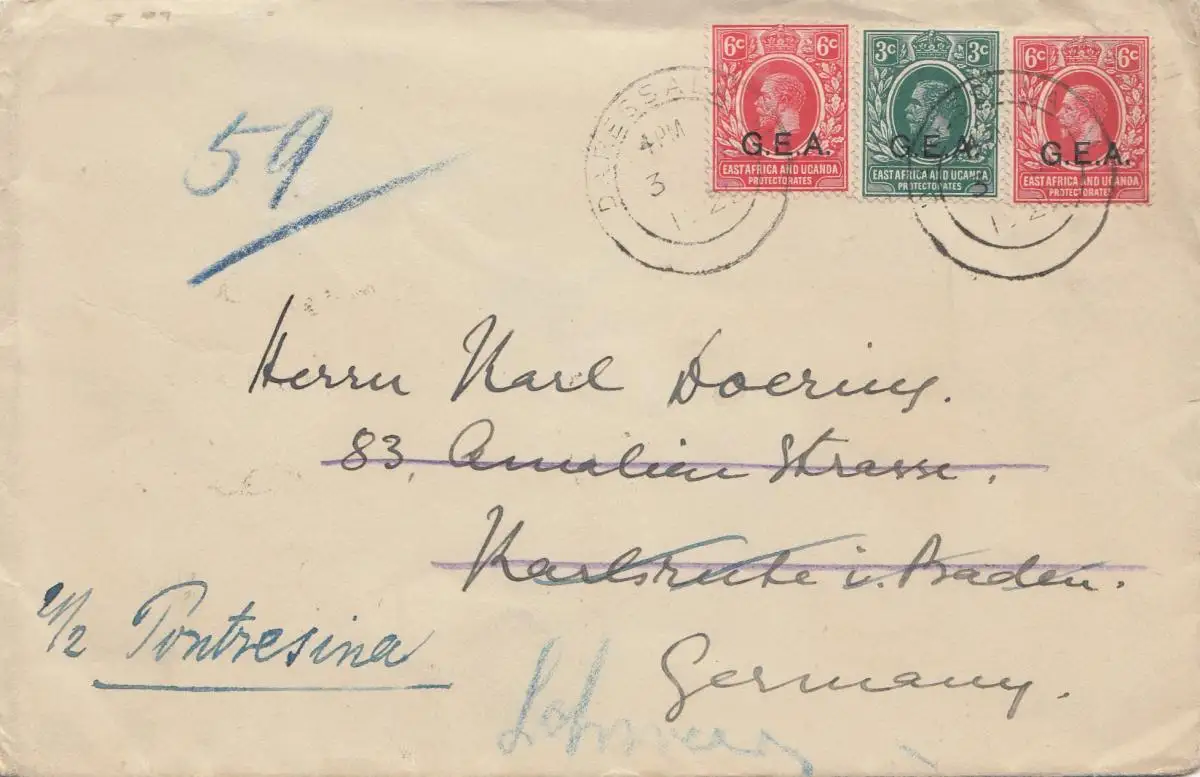 6c 6c
G.E.A.
EAST AFRICA AND UGANDA
PROTECTORATES
3c 3c
G.E.A.
EAST AFRICA AND UGANDA
PROTECTORATES
6c 6c
G.E.A.
EAST AFRICA AND UGANDA
PROTECTORATES
DAR-ES-SALA
4 PM
3
59
Herrn Karl Doering.
83, Amalien Strasse.
Karlsruhe i. Baden.
Germany.
Pontresina